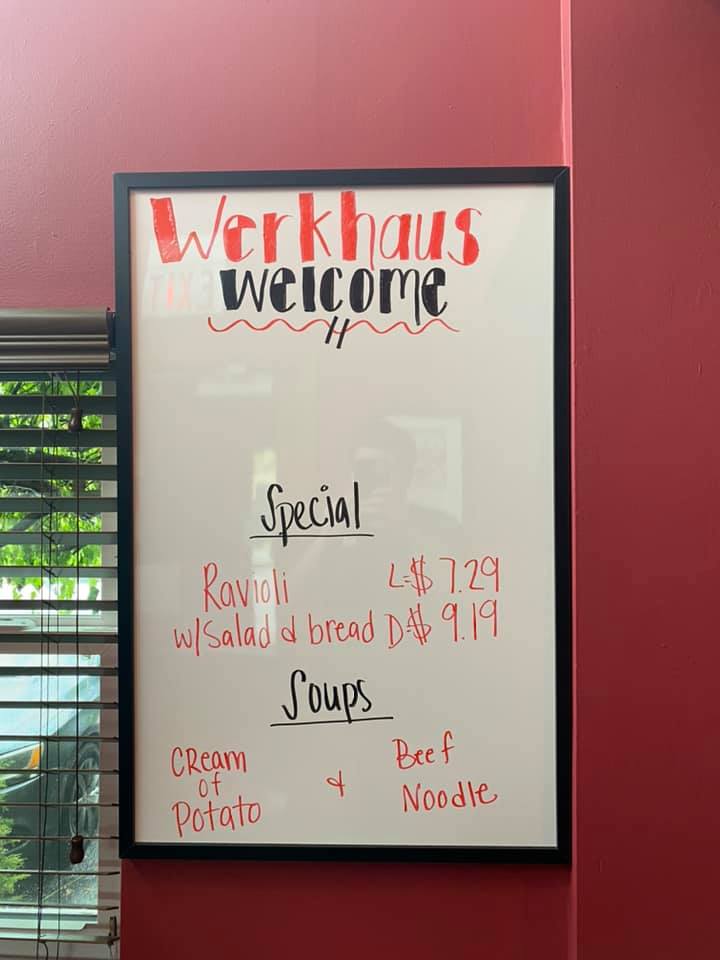 Werkhaus
welcome
Special
Ravioli L=$ 7.29
w/Salad & bread D=$ 9.19
Soups
CReam of Potato & Beef Noodle